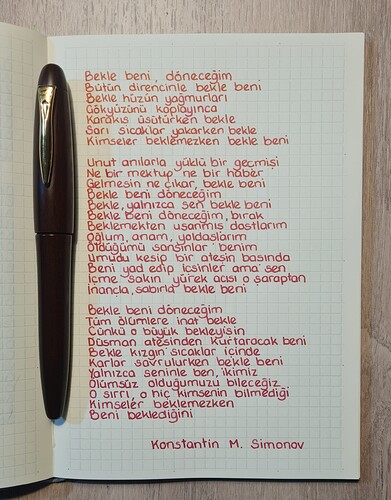 Bekle beni, döneceğim
Bütün direncinle bekle beni
Bekle hüzün yağmurları
Gökyüzünü koplayınca
Karakış üşütürken bekle
Sarı sıcaklar yakarken bekle
Kimseler beklemezken bekle beni
Unut anılarla yüklü bir geçmişi
Ne bir mektup ne bir haber
Gelmesin ne çıkar, bekle beni
Bekle beni döneceğim
Bekle, yalnızca sen bekle beni
Bekle beni döneceğim, bırak
Beklemekten usanmış dostlarım
Oğlum, anam, yoldaşlarım
Öldüğümü sansınlar benim
Umudu kesip bir ateşin başında
Beni yad edip içsinler ama sen
İçme sakın yürek acısı o şaraptan
İnançla, sabırla bekle beni
Bekle beni döneceğim
Tüm ölümlere inat bekle
Çünkü o büyük bekleyişin
Düşman ateşinden kurtaracak beni
Bekle kızgın sıcaklar içinde
Karlar savrulurken bekle beni
Yalnızca seninle ben, ikimiz
Ölümsüz olduğumuzu bileceğiz
O sırrı, o hiç kimsenin bilmediği
Kimseler beklemezken
Beni beklediğini
Konstantin M. Simonov